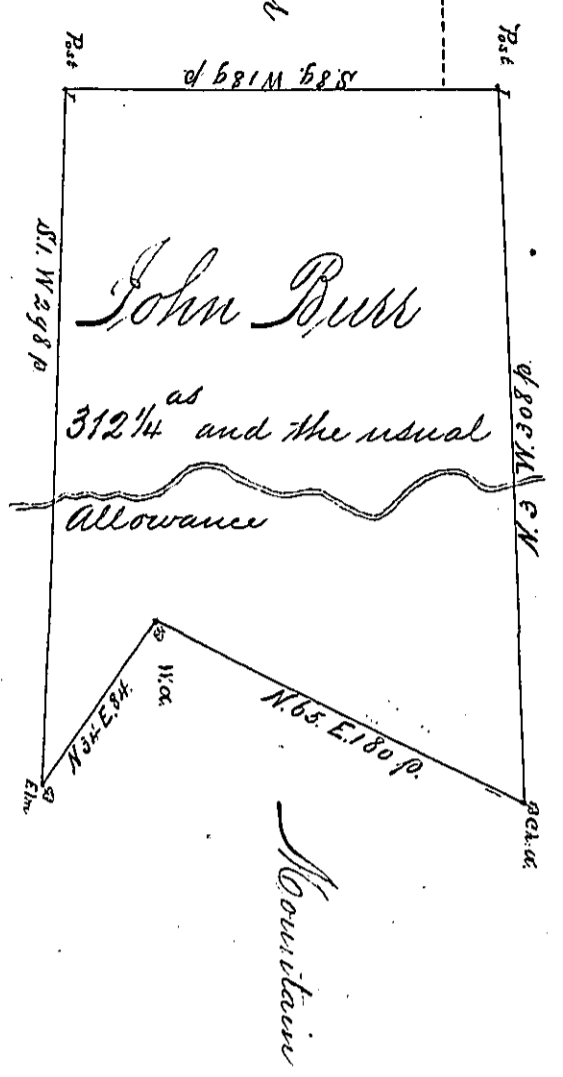 Post
Post
S. 89. W 189 p
N. 3 W. 308 p
S. 1. W 298 p
John Burr
312 1/4 as and the usual
Allowance
W.O.
N. 34. E. 84.
N. 65. E. 180 p.
Elm
Ch. O.
Mountain